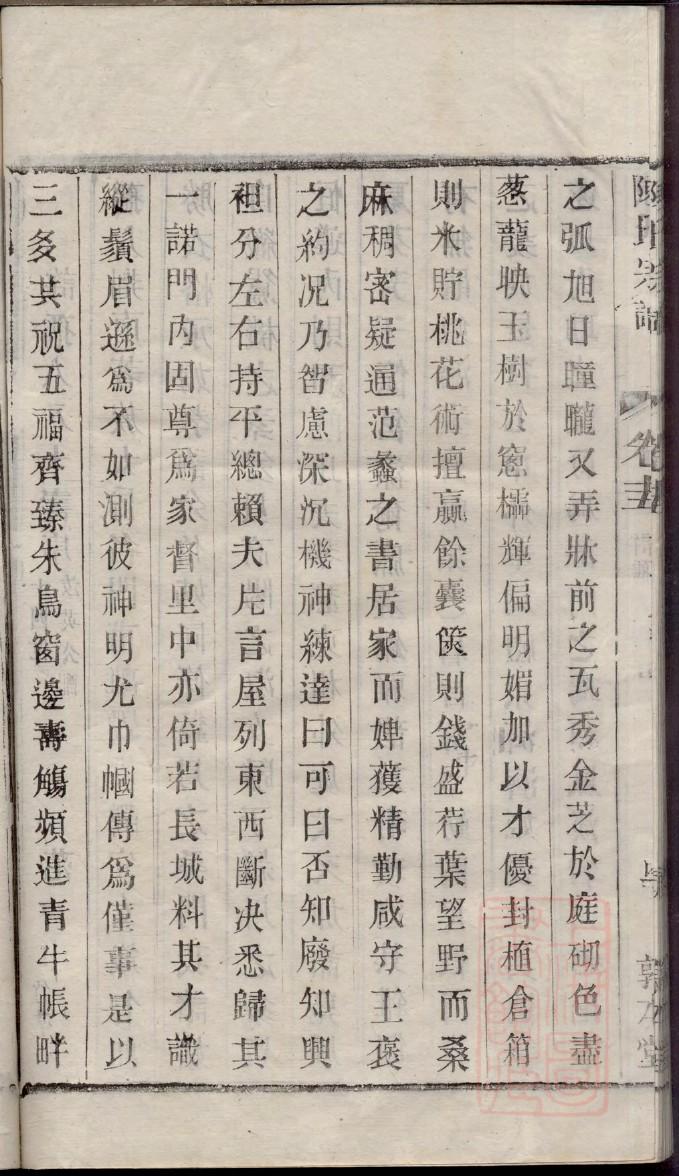 之弧旭日曈曨又弄牀前之瓦秀金芝於庭砌色盡
葱蘢映玉樹於窻櫺輝偏明媚加以才優封殖倉箱
則米貯桃花術擅贏餘囊篋則錢盛荇葉望野而桑
麻稠密疑通范蠡之書居家而婢獲精勤咸守王褒
之約况乃智慮深沉機神練達曰可曰否知廢知興
袒分左右持平總賴夫片言屋列東西斷决悉歸其
一諾門內固尊爲家督里中亦倚若長城料其才識
縱鬚眉遜爲不如測彼神明尤巾幗傳爲僅事是以
三多其祝五福齊臻朱鳥窗邊壽觴頻進青牛帳畔